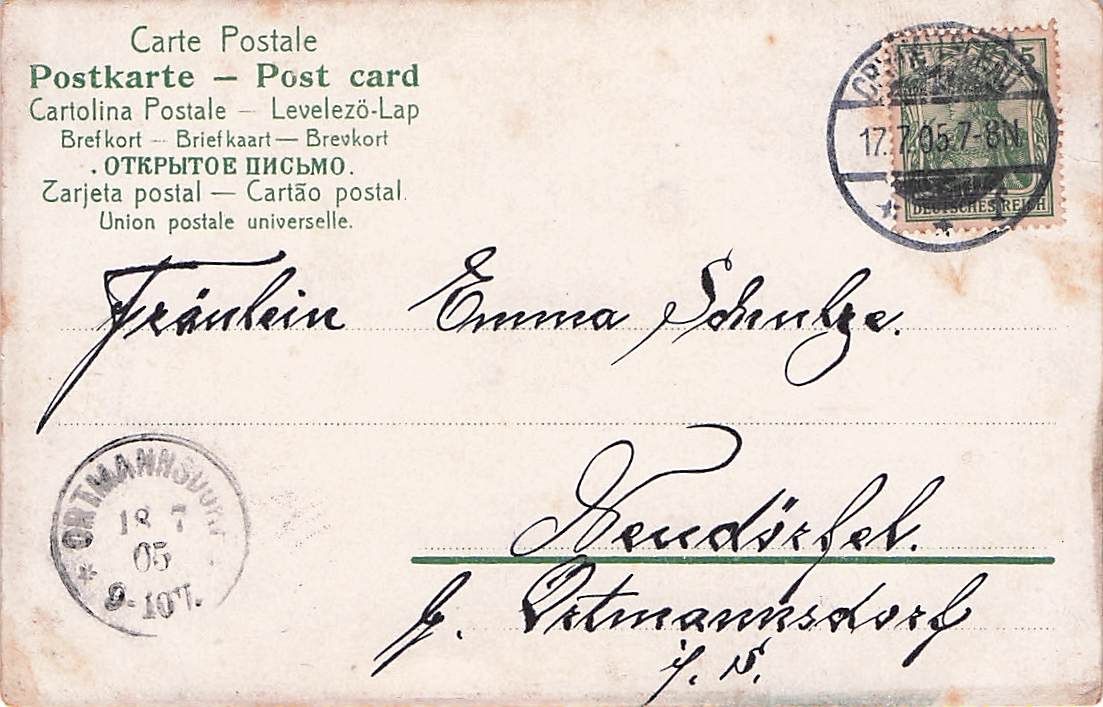 Carte Postale
Postkarte – Post card
Cartolina Postale – Levelezö-Lap
Brefkort – Briefkaart – Brevkort
. ОТКРЫТОЕ ПИСЬМО.
Tarjeta postal – Cartão postal.
Union postale universelle.
5
17.7.05.7-8N.
* * 1
DEUTSCHES REICH
Fräulein Emma Schulze.
Neudörfel.
b. Ortmannsdorf
i. S.
* ORTMANNSDORF
18 7
05
9-10V.